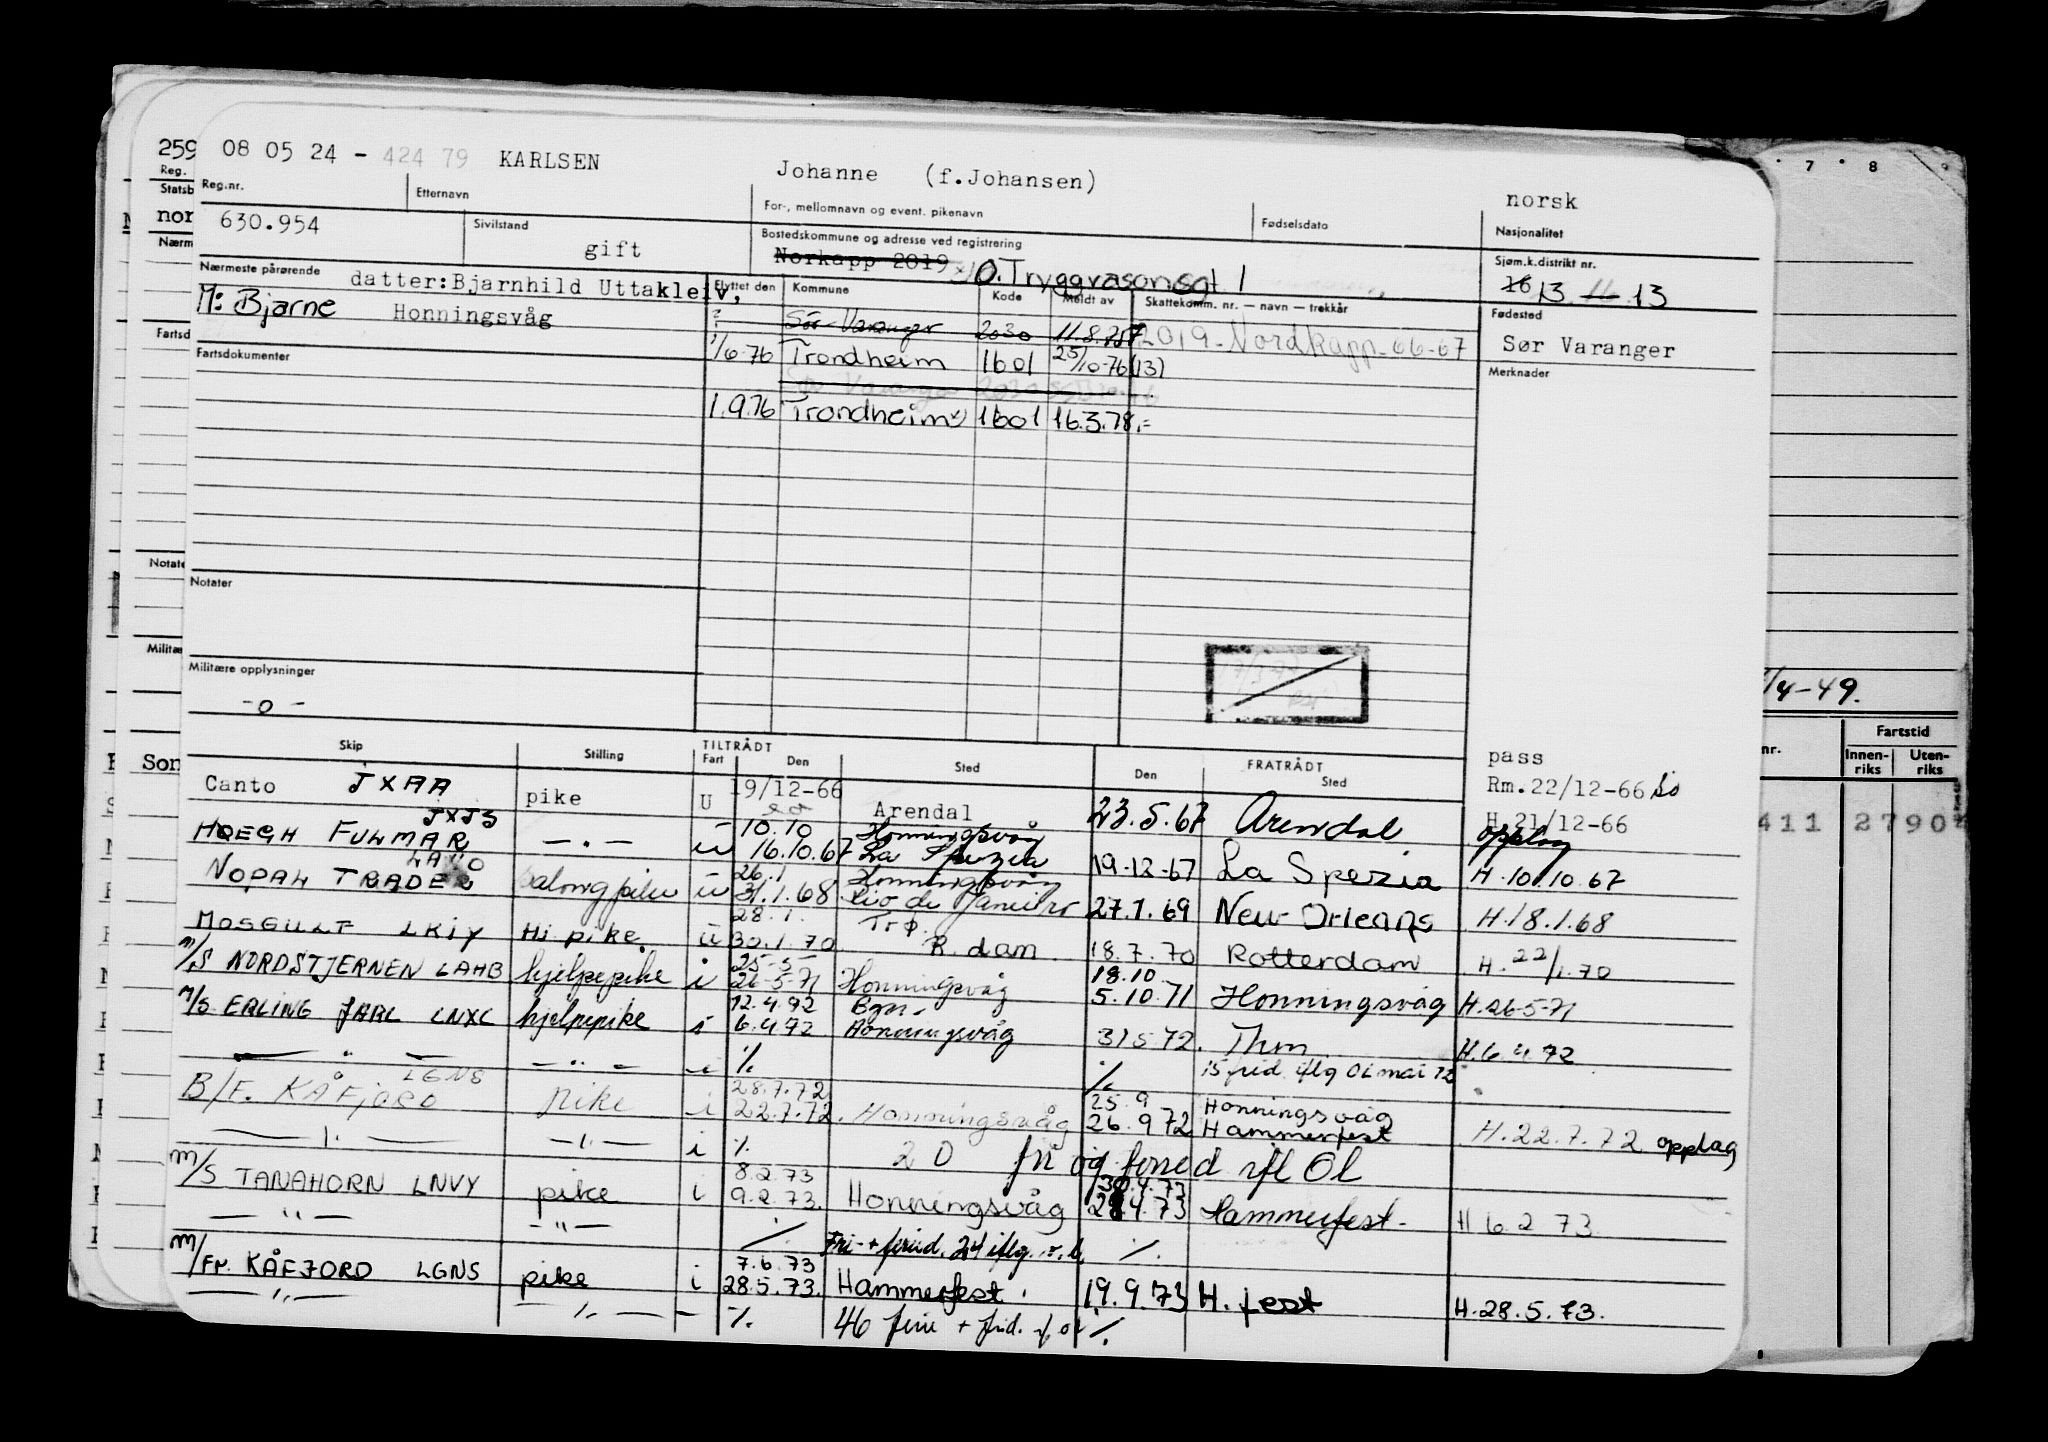 259 08 05 24 - 424 79 KARLSEN Johanne (f.Johansen) norsk
Reg. Reg.nr. Etternavn For-, mellomnavn og event. pikenavn Fødselsdato Nasjonalitet
Statsb
nor 630.954 Sivilstand gift Bostedskommune og adresse ved registrering Sjøm.k.distrikt nr.
Norkapp 2019 O.Tryggvasonsgt. 1 16 13 11 — 13
Nærm Nærmeste pårørende datter:Bjarnhild Uttakleiv, Flyttet den Kommune Kode Meldt av Skattekomm. nr. — navn — trekkår Fødested
M: Bjarne Honningsvåg ? Sør-Varanger 2030 11.8. 2019-Nordkapp-66-67 Sør Varanger
Fartsd Fartsdokumenter 1/6-76 Trondheim 1601 25/10-76 (13) Merknader
Sør Varanger 2030
1.9.76 Trondheim 1601 16.3.78
Notate Notater
Militæ Militære opplysninger
-o-
/4-49.
Skip Stilling TILTRÅDT FRATRÅDT pass nr. Fartstid
Fart Den Sted Den Sted Innen-riks Uten-riks
Son Canto JXAA pike U 19/12-66 Arendal 23.5.67 Arendal Rm.22/12-66
H 21/12-66
opplag
411 2790
HØEGH FULMAR JXJS —.— u 10.10 Honningsvåg
16.10.67 La Spezia 19.12.67 La Spezia H.10.10.67
NOPAL TRADER salongpike u 26.1 Honningsvåg
31.1.68 Rio de Janeiro 27.1.69 New Orleans H.18.1.68
MOSGULF LKIY Hj pike u 28.1. Trø.
30.1.70 R.dam 18.7.70 Rotterdam H.22/1.70
M/S NORDSTJERNEN LAHB hjelpepike i 25-5 18.10
26-5-71 Honningsvåg 5.10.71 Honningsvåg H.26-5-71
M/S ERLING JARL LNXC hjelpepike i 12.4.92 Bgn.
6.4.92 Honningsvåg 31 5 72. Thm H.6.4.72
— " — — " — i ·/. ·/. 15 fried. iflg OL mai 72
B/F. KÅFJORD LGNS pike i 28.7.72 25.9 Honningsvåg
22.7.72. Honningsvåg 26.9 72 Hammerfest H.22.7.72 opplag
— " — — " — i ·/. 20 fri og feried ifl Ol
M/S TANAHORN LNVY pike i 8.2.73 30.4.73
9.2.73. Honningsvåg 28.4.73 Hammerfest- H 6.2 73.
— " — — " — ·/. Fri- + feried. 24 iflg. ·/.
M/Fr. KÅFJORD LGNS pike i 7.6.73
28.5.73. Hammerfest. 19.9.73 H.fest H.28.5.73.
— " — — " — — ·/. 46 ferie + frid. ·/.